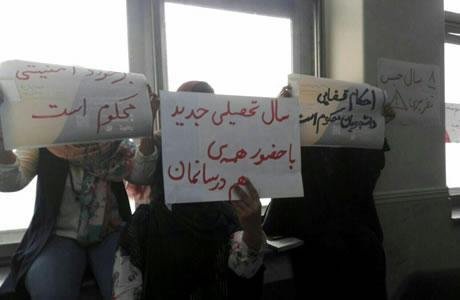 برخورد امنیتی
محکوم است
سال تحصیلی جدید
با حضور همه‌ی
هم‌درسانمان
احکام قضایی
دانشجویان محکوم است
۸ سال حبس